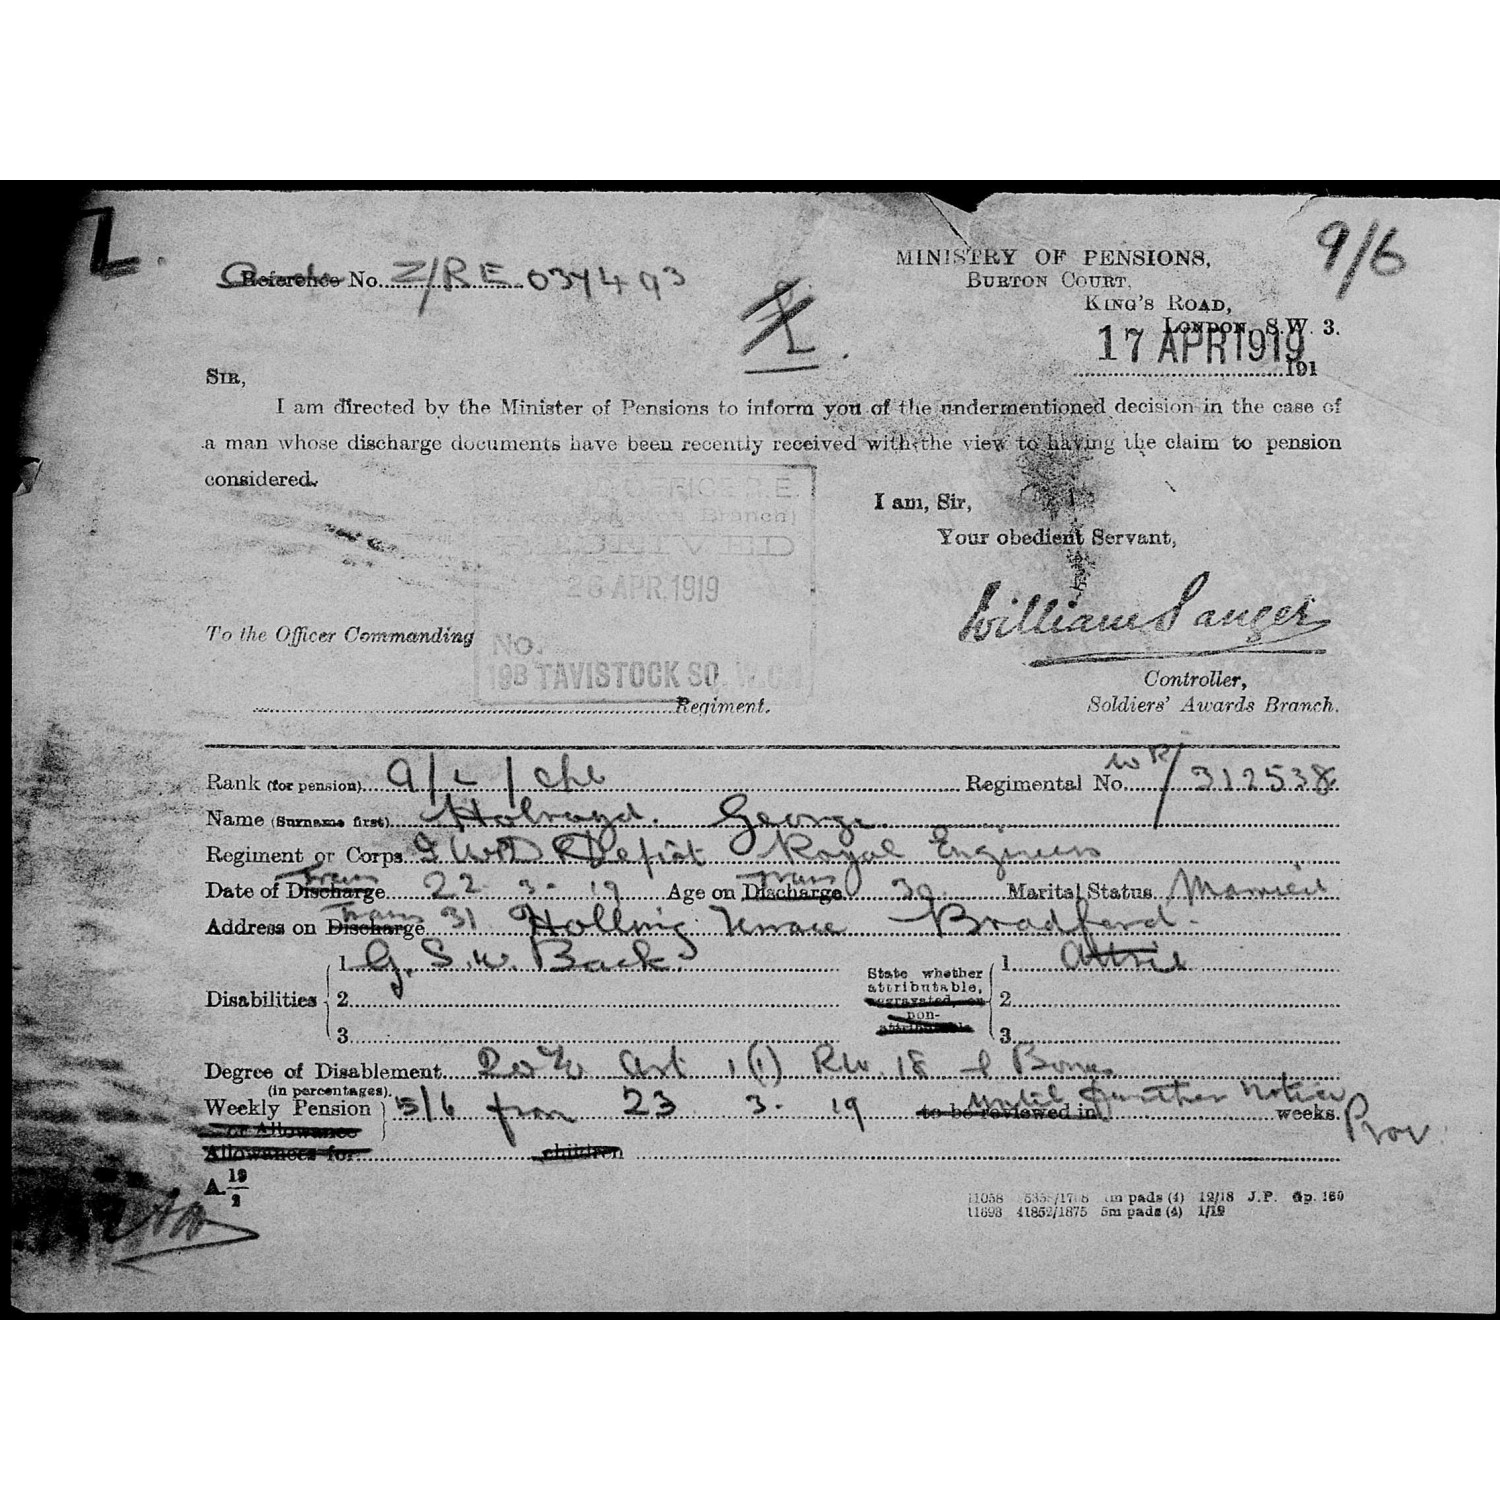 L.
9/6
Reference No. Z/RE 037493
MINISTRY OF PENSIONS,
BURTON COURT,
KING'S ROAD,
LONDON, S.W. 3.
17 APR 1919
191
SIR,
I am directed by the Minister of Pensions to inform you of the undermentioned decision in the case of
a man whose discharge documents have been recently received with the view to having the claim to pension
considered.
OFFICE R.E.
Branch)
RECEIVED
26 APR. 1919
NO.
19B TAVISTOCK SQ. W.C.1
I am, Sir,
Your obedient Servant,
William Sanger
Controller,
Soldiers' Awards Branch.
To the Officer Commanding
Regiment.
Rank (for pension) A/L/Cpl Regimental No. WR/312538
Name (Surname first) Holroyd. George.
Regiment or Corps I W D Depot Royal Engineers
Date of Discharge Trans 22. 3. 19 Age on Discharge Trans 39. Marital Status Married
Address on Discharge Trans 31 Holling Terrace Bradford.
Disabilities 1 G. S. W. Back.
2
3
State whether
attributable,
aggravated, or
non-
attributable
1 Attrib
2
3
Degree of Disablement 20% Art 1(1) RW. 18 & Bonus
(in percentages).
Weekly Pension 5/6 from 23. 3. 19 to be reviewed in until further notice weeks. Prov
or Allowance
Allowances for children
A. 19/2
11058 /17 m pads (4) 12/18 J.P. Gp. 160
11693 41852/1875 5m pads (4) 1/19